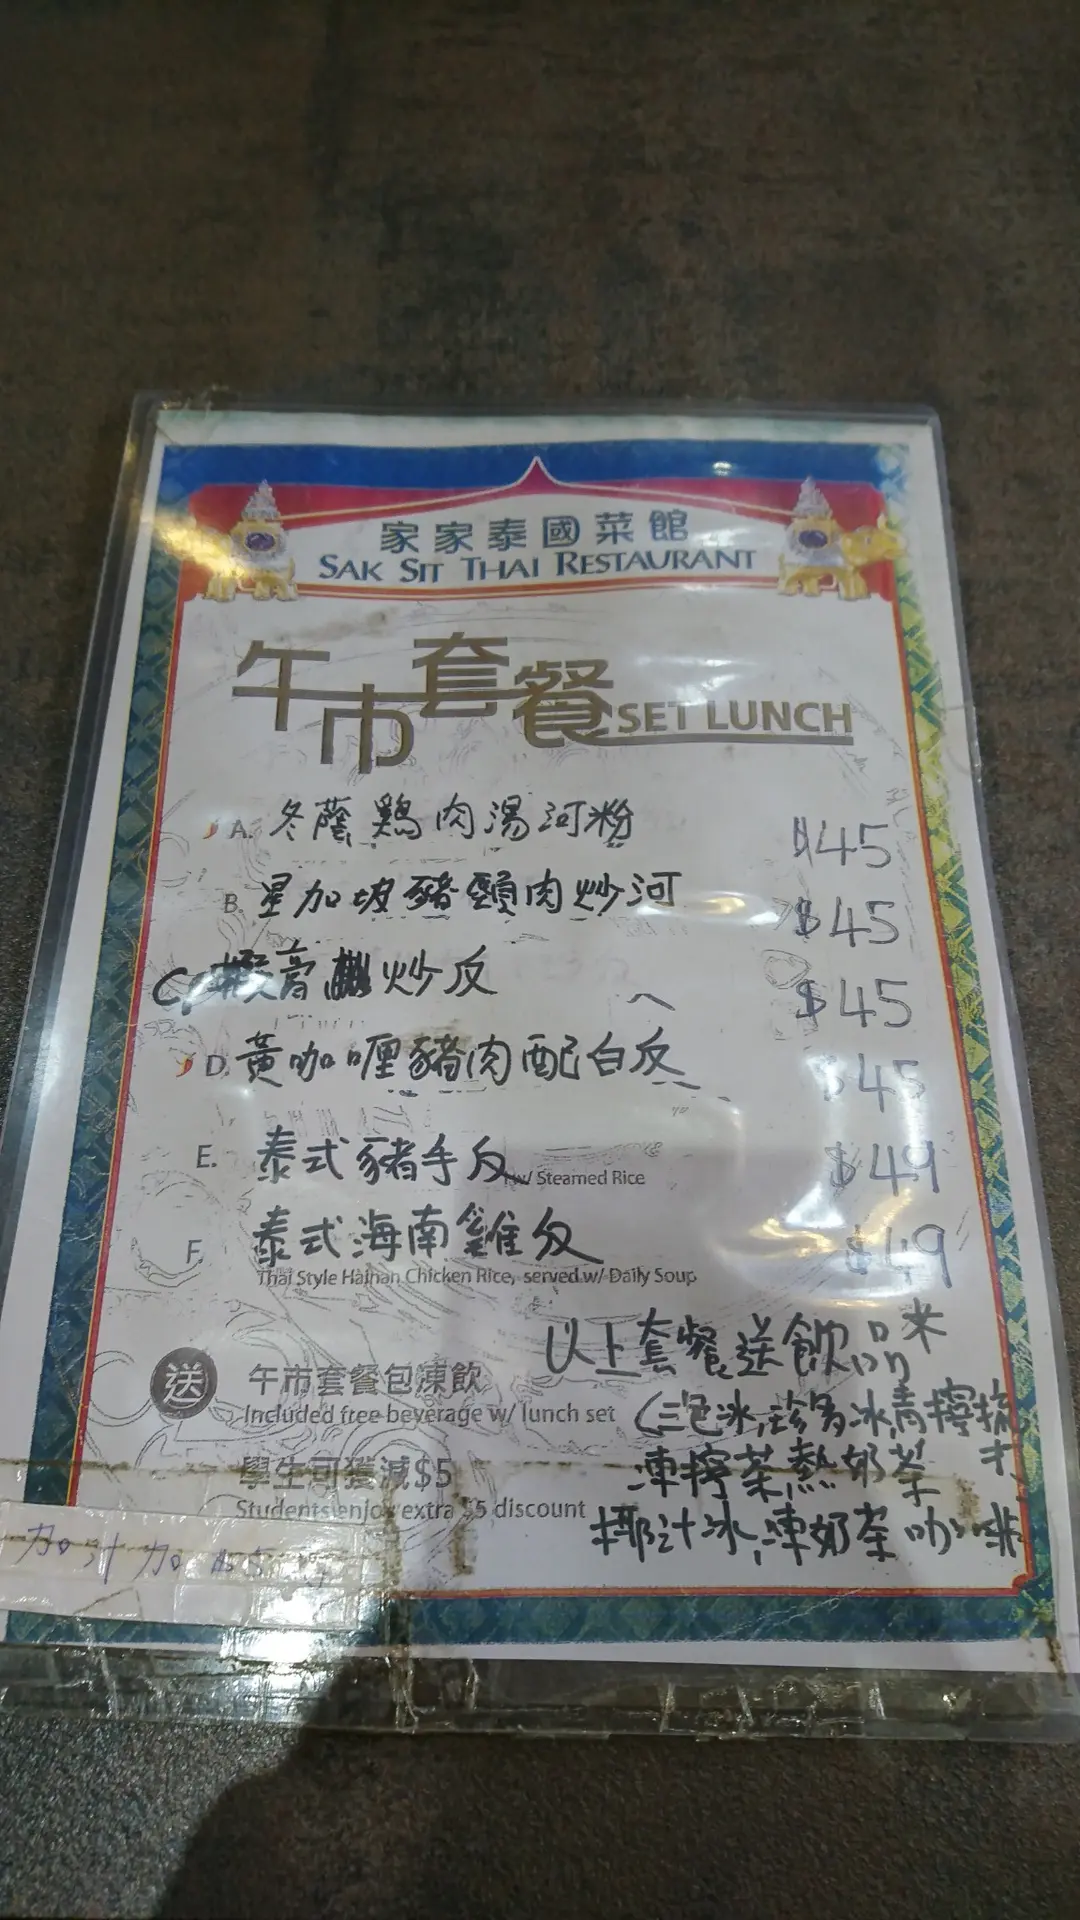 家家泰國菜館
SAK SIT THAI RESTAURANT
午市套餐 SET LUNCH
A. 冬蔭鷄肉湯河粉 $45
B. 星加坡豬頸肉炒河 $45
C. 膏炒反 $45
D. 黃咖喱豬肉配白反 $45
E. 泰式豬手反 w/ Steamed Rice $49
F. 泰式海南雞反 $49
Thai Style Hainan Chicken Rice, served w/ Daily Soup
以上套餐送飲品
送 午市套餐包凍飲
Included free beverage w/ lunch set
(三色冰,珍多冰,青檸梳打
凍檸茶,熱奶茶
椰汁冰,凍奶茶咖啡
學生可獲減$5
Students enjoy extra $5 discount
加汁加